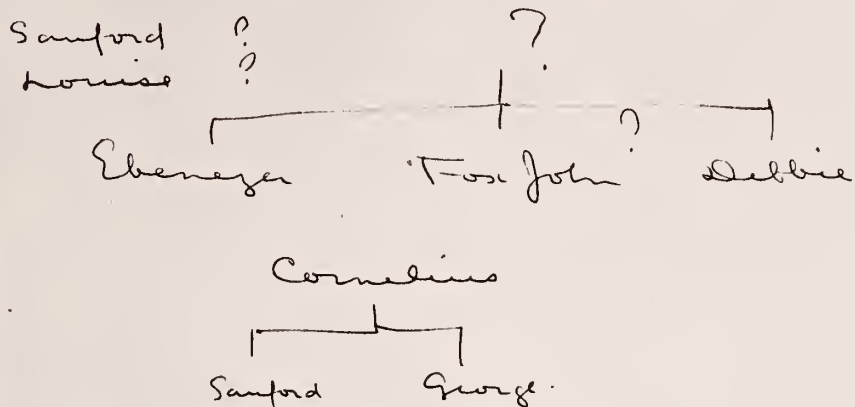 Sanford ? ?
Louise ?
Ebenezer "Fox John ? Debbie
Cornelius
Sanford George.